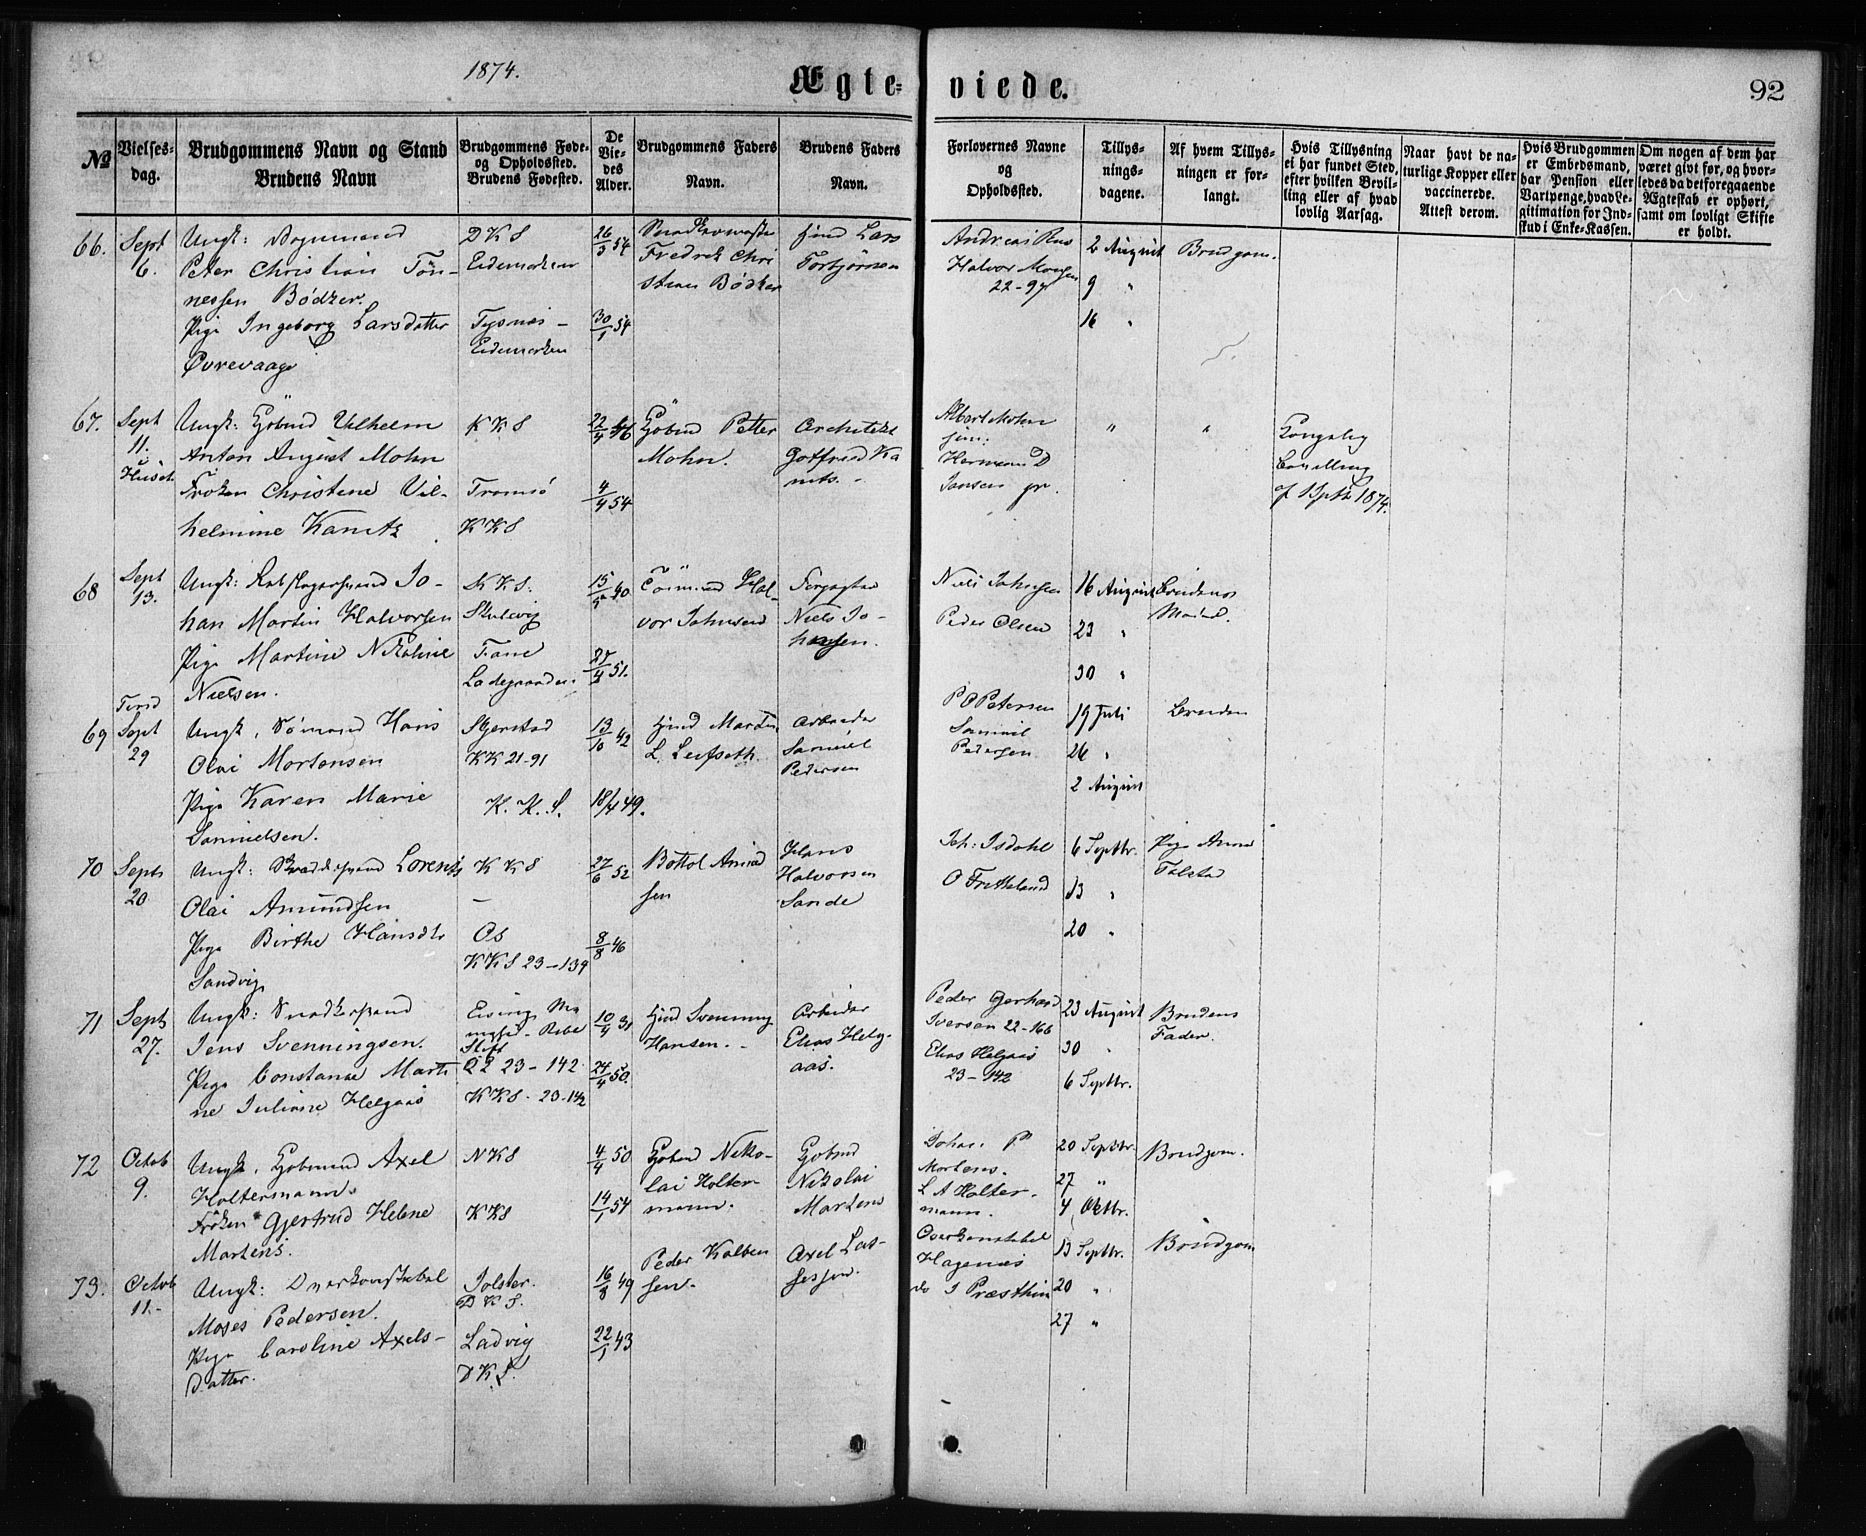 1874.
Ægte-
viede.
92
№
Vielses-
dag.
Brudgommens Navn og Stand
Brudens Navn
Brudgommens Føde-
og Opholdssted.
Brudens Fødested.
De
Vie-
des
Alder.
Brudgommens Faders
Navn.
Brudens Faders
Navn.
Forlovernes Navne
og
Opholdssted.
Tillys-
nings-
dagene.
Af hvem Tillys-
ningen er for-
langt.
Hvis Tillysning
ei har fundet Sted,
efter hvilken Bevil-
ling eller af hvad
lovlig Aarsag.
Naar havt de na-
turlige Kopper eller
vaccinerede.
Attest derom.
Hvis Brudgommen
er Embedsmand,
har Pension eller
Vartpenge, hvad Le-
gitimation for Ind-
skud i Enke-Kassen.
Om nogen af dem har
været givt før, og hvor-
ledes da det foregaaende
Ægteskab er ophørt,
samt om lovligt Skifte
er holdt.
66.
Sept
6.
Ungk:
Peter Christian Tön-
nessen Bödker.
Pige Ingeborg Larsdatter
Øvrevaage
DKS
Eidemarken
Tysnes -
Eidemarken
26/3 54
30/1 54
Fredrik Chri
stian Bödker
Lars
Torbjörnsen
Andreas
Halvor
22-97
2 August
9 "
16 "
Brudgom.
67.
Sept
11.
Huset
Ungk: Göbmd Vilhelm
Anton August Mohn
Fröken Christene Vil-
helmine Kanitz
KKS
Tromsö
KKS
22/4 46
4/4 54
Göbmd Petter
Mohn.
Architekt
Gotfried Ka
nits. -
Albert Mohn
jun:
Herman D
Jansen
"
"
Kongelig
Bevilling
1874.
68
Sept
13.
Ungk: Jo-
han Martin Halvorsen
Pige Martine Nikoline
Nielsen.
Skulevig
Fane
Ladegaarden
15/5 40
27/4 51.
Tömmd Hal-
vor Johnsen
Niels Jo-
hansen.
Niels Johnsen
Peder Olsen
16 August
23 "
30 "
Brudens
Moder.
69
Tirsd
Sept
29
Ungk. Sömand Hans
Olai Mortensen
Pige Karen Marie
Samuelsen.
Gjerstad
KK 21-91
K. K. S.
13/10 42
18/4 49.
Hmd Martin
L. Leifseth.
Arbeider
Samuel
Pedersen
P O Petersen
Samuel
Pedersen
19 Juli
26 "
2 August
Bruden
70
Sept
20
Ungk: Lorents
Olai Amundsen
Pige Birthe Hansdtr
Sandvig
KKS
-
Os
KKS 23-139
27/6 52
8/8 46
Bottol Amund
sen
Hans
Halvorsen
Sande
Joh: Isdahl
O Fritteland
6 Septbr.
13 "
20 "
Pige Anna
71
Sept
27.
Ungk: Snedkersvend
Jens Svenningsen.
Pige Constance Marti
ne Juliane Helgaas
Ribe
Stift
23-142
KKS - 23-142
10/4 31
24/4 50.
Hmd Svenning
Hansen. -
Arbeider
Elias Helg-
aas.
Peder Gerhard
Iversen 22-166
Elias Helgaas
23-142
23 August
30 "
6 Septbr.
Brudens
Fader.
72
Octob
9.
Ungk. Göbmand Axel
Holtermann.
Fröken Gjertrud Helene
Martens.
NKS
KKS
4/4 50
14/1 54
Göbmd Niko-
lai Holter
mann.
Göbmd
Nikolai
Martens
Johan P
Martens.
L A Holter-
mann.
20 Septbr.
27 "
4 Oktbr.
Brudgom.
73.
Octob
11.-
Ungk: Overkonstabel
Moses Pedersen.
Pige Caroline Axels-
datter.
Jölster.
DKS.
Ladvig
DKS.
16/8 49
22/1 43
Peder Kolben
sen.
Axel Las-
sessen.
Overkonstabel
Hagenæs
do J Præsthun
13 Septbr.
20 "
27 "
Brudgom